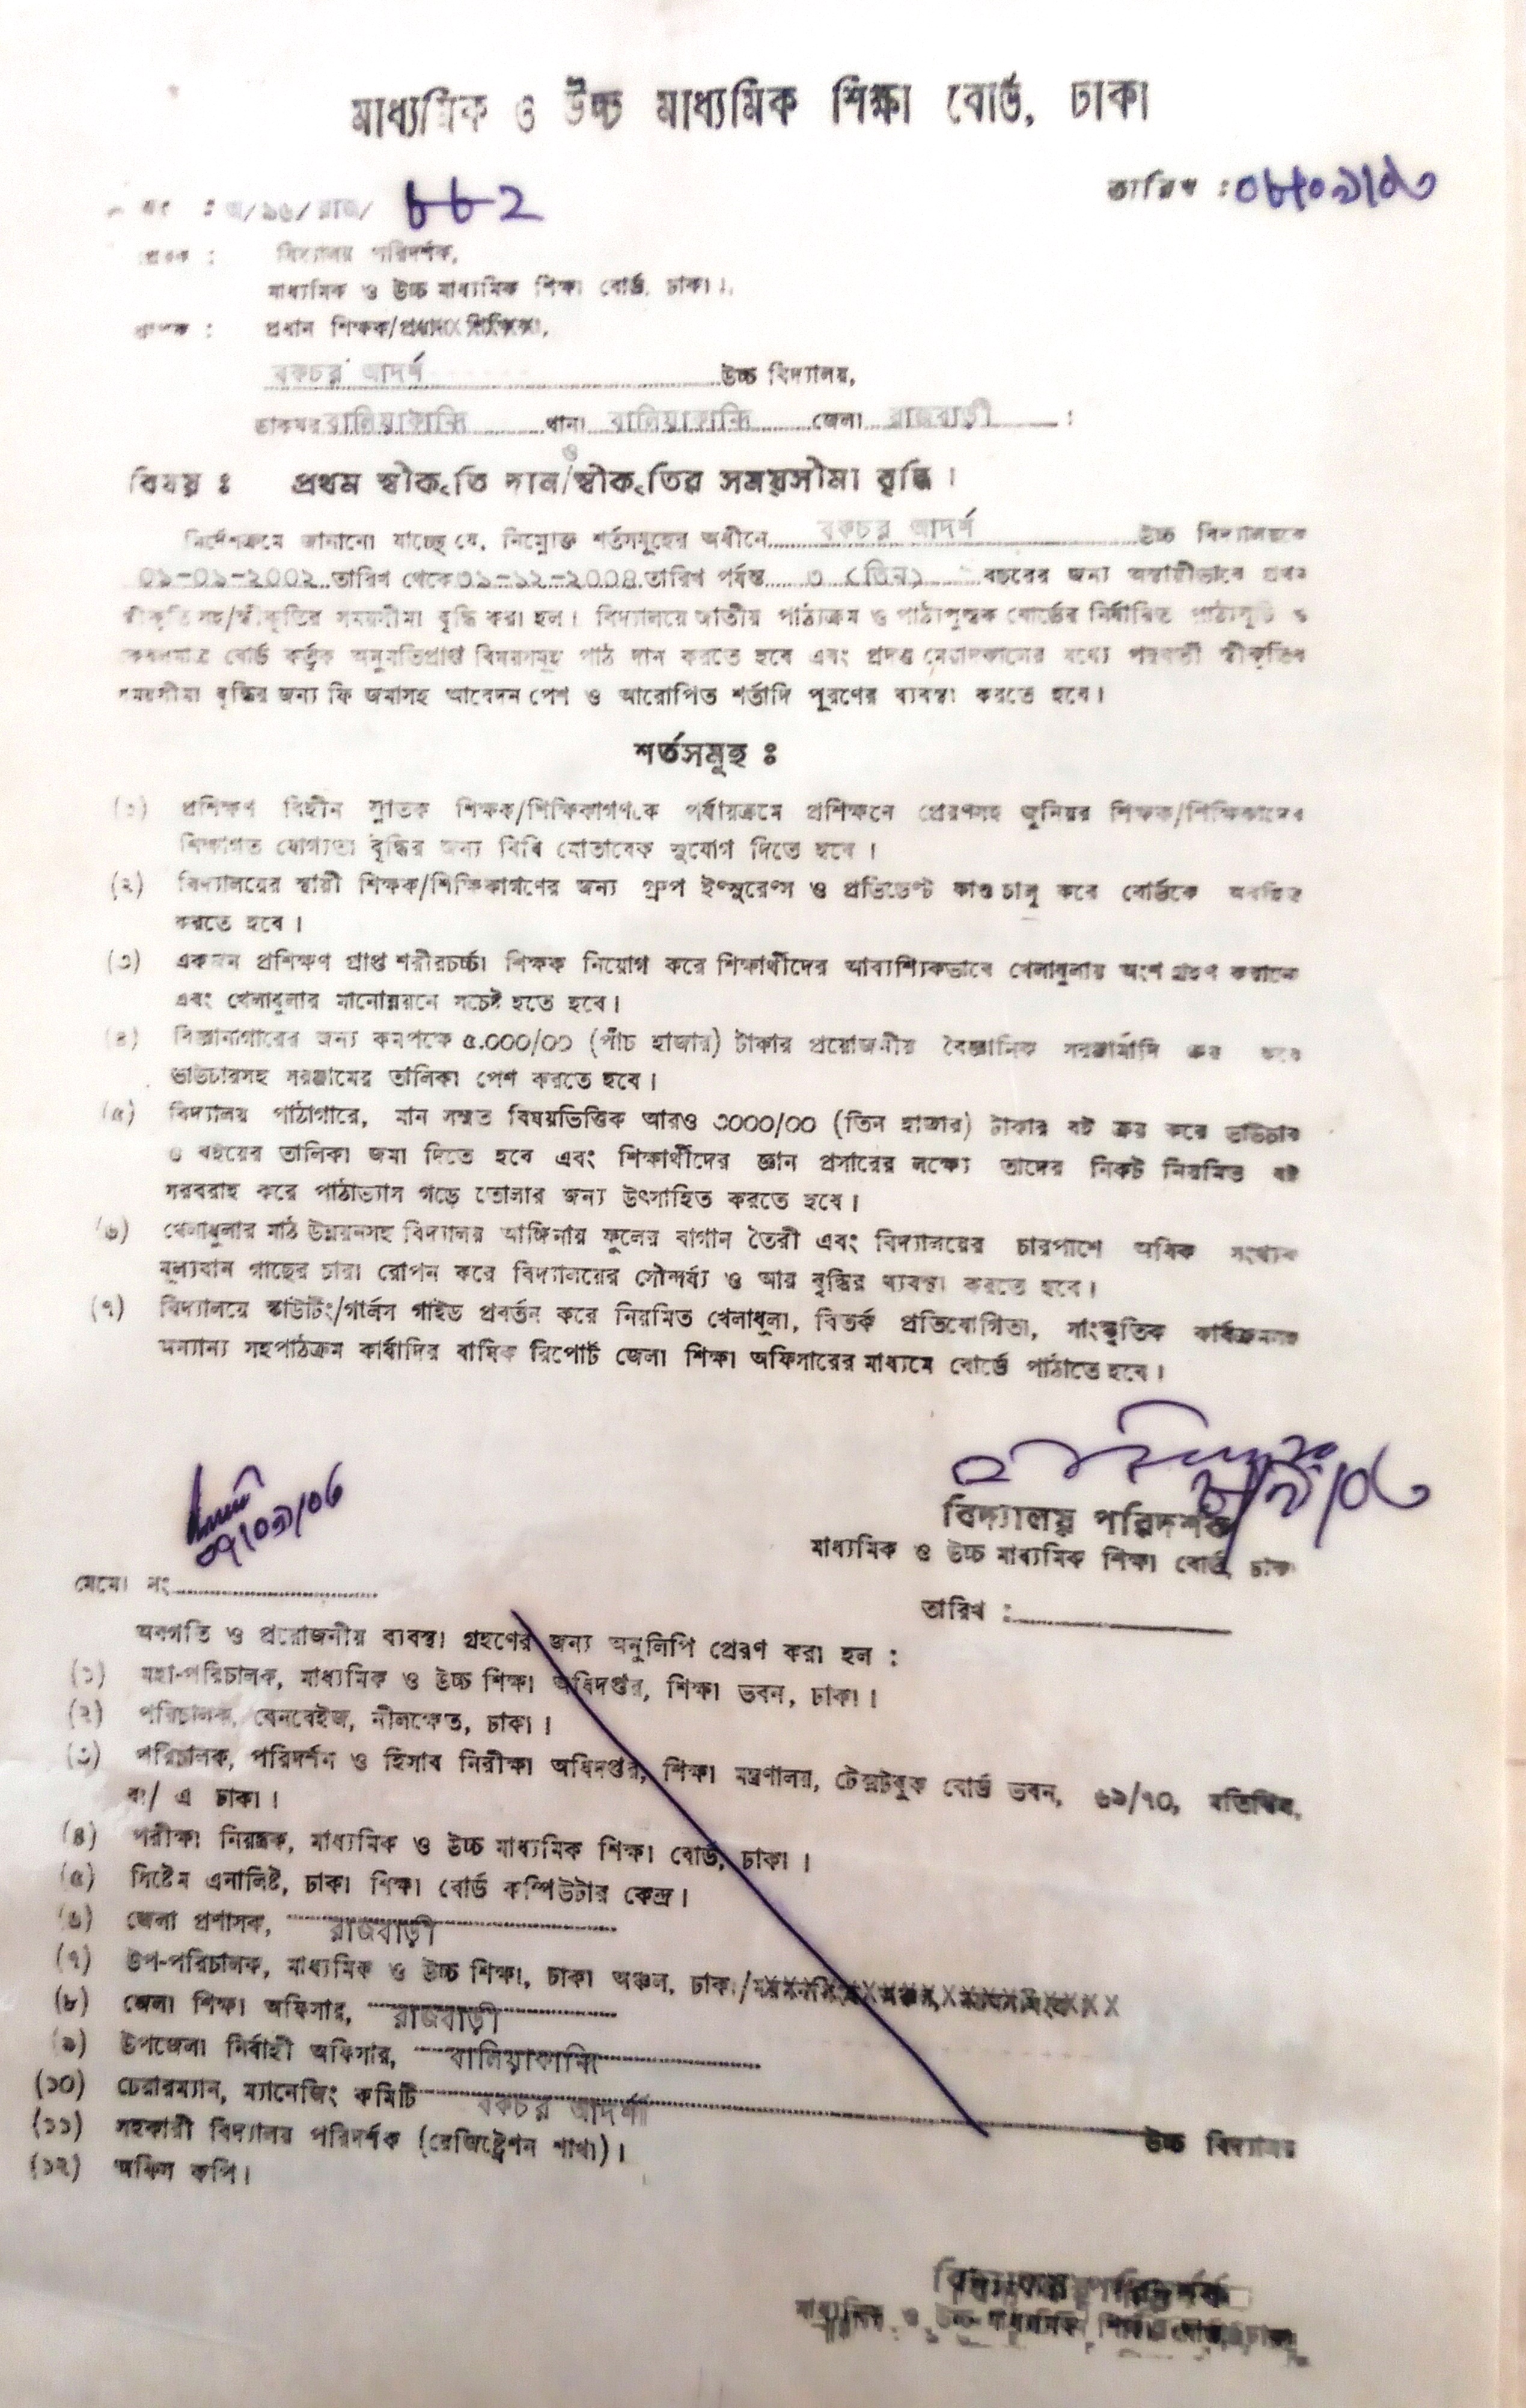 মাধ্যমিক ও উচ্চ মাধ্যমিক শিক্ষা বোর্ড, ঢাকা
নং : অ/১৬/রাজ/ ৮৮২
তারিখ : ০৮/০৯/০৬
প্রেরক : বিদ্যালয় পরিদর্শক,
মাধ্যমিক ও উচ্চ মাধ্যমিক শিক্ষা বোর্ড, ঢাকা।
প্রাপক : প্রধান শিক্ষক/প্রধান শিক্ষিকা,
বকচর আদর্শ উচ্চ বিদ্যালয়,
ডাকঘর বালিয়াকান্দি থানা বালিয়াকান্দি জেলা রাজবাড়ী :
বিষয় : প্রথম স্বীকৃতি দান/ও স্বীকৃতির সময়সীমা বৃদ্ধি।
নির্দেশক্রমে জানানো যাচ্ছে যে, নিম্নোক্ত শর্তসমূহের অধীনে বকচর আদর্শ উচ্চ বিদ্যালয়কে
০১-০১-২০০২ তারিখ থেকে ৩১-১২-২০০৪ তারিখ পর্যন্ত ৩ (তিন) বছরের জন্য অস্থায়ীভাবে প্রথম
স্বীকৃতি সহ/স্বীকৃতির সময়সীমা বৃদ্ধি করা হল। বিদ্যালয়ে জাতীয় পাঠ্যক্রম ও পাঠ্যপুস্তক বোর্ডের নির্ধারিত পাঠ্যসূচি ও
কেবলমাত্র বোর্ড কর্তৃক অনুমতিপ্রাপ্ত বিষয়সমূহ পাঠ দান করতে হবে এবং প্রদত্ত মেয়াদকালের মধ্যে পরবর্তী স্বীকৃতির
সময়সীমা বৃদ্ধির জন্য ফি জমাসহ আবেদন পেশ ও আরোপিত শর্তাদি পূরণের ব্যবস্থা করতে হবে।
শর্তসমূহ :
(১) প্রশিক্ষণ বিহীন স্নাতক শিক্ষক/শিক্ষিকাগণকে পর্যায়ক্রমে প্রশিক্ষনে প্রেরণসহ জুনিয়র শিক্ষক/শিক্ষিকাদের
শিক্ষাগত যোগ্যতা বৃদ্ধির জন্য বিধি মোতাবেক সুযোগ দিতে হবে।
(২) বিদ্যালয়ের স্থায়ী শিক্ষক/শিক্ষিকাগণের জন্য গ্রুপ ইন্সুরেন্স ও প্রভিডেন্ট ফাণ্ড চালু করে বোর্ডকে অবহিত
করতে হবে।
(৩) একজন প্রশিক্ষণ প্রাপ্ত শরীরচর্চ্চা শিক্ষক নিয়োগ করে শিক্ষার্থীদের আবাশ্যিকভাবে খেলাধুলায় অংশ গ্রহণ করানো
এবং খেলাধুলার মানোন্নয়নে সচেষ্ট হতে হবে।
(৪) বিজ্ঞানাগারের জন্য কমপক্ষে ৫.০০০/০০ (পাঁচ হাজার) টাকার প্রয়োজনীয় বৈজ্ঞানিক সরঞ্জামাদি ক্রয় করে
ভাউচারসহ সরঞ্জামের তালিকা পেশ করতে হবে।
(৫) বিদ্যালয় পাঠাগারে, মান সম্মত বিষয়ভিত্তিক আরও ৩০০০/০০ (তিন হাজার) টাকার বই ক্রয় করে ভাউচার
ও বইয়ের তালিকা জমা দিতে হবে এবং শিক্ষার্থীদের জ্ঞান প্রসারের লক্ষ্যে তাদের নিকট নিয়মিত বই
সরবরাহ করে পাঠাভ্যাস গড়ে তোলার জন্য উৎসাহিত করতে হবে।
(৬) খেলাধুলার মাঠ উন্নয়নসহ বিদ্যালয় আঙ্গিনায় ফুলের বাগান তৈরী এবং বিদ্যালয়ের চারপাশে অধিক সংখ্যক
মূল্যবান গাছের চারা রোপন করে বিদ্যালয়ের সৌন্দর্য্য ও আয় বৃদ্ধির ব্যবস্থা করতে হবে।
(৭) বিদ্যালয়ে স্কাউটিং/গার্লস গাইড প্রবর্তন করে নিয়মিত খেলাধুলা, বিতর্ক প্রতিযোগিতা, সাংস্কৃতিক কার্যক্রমসহ
অন্যান্য সহপাঠক্রম কার্যাদির বার্ষিক রিপোর্ট জেলা শিক্ষা অফিসারের মাধ্যমে বোর্ডে পাঠাতে হবে।
০৭/০৯/০৬
৮/৯/০৬
বিদ্যালয় পরিদর্শক
মাধ্যমিক ও উচ্চ মাধ্যমিক শিক্ষা বোর্ড, ঢাকা
মেমো নং
তারিখ :
অবগতি ও প্রয়োজনীয় ব্যবস্থা গ্রহণের জন্য অনুলিপি প্রেরণ করা হল :
(১) মহা-পরিচালক, মাধ্যমিক ও উচ্চ শিক্ষা অধিদপ্তর, শিক্ষা ভবন, ঢাকা।
(২) পরিচালক, বেনবেইজ, নীলক্ষেত, ঢাকা।
(৩) পরিচালক, পরিদর্শন ও হিসাব নিরীক্ষা অধিদপ্তর, শিক্ষা মন্ত্রণালয়, টেক্সটবুক বোর্ড ভবন, ৬৯/৭০, মতিঝিল,
বা/ এ ঢাকা।
(৪) পরীক্ষা নিয়ন্ত্রক, মাধ্যমিক ও উচ্চ মাধ্যমিক শিক্ষা বোর্ড, ঢাকা।
(৫) সিষ্টেম এনালিষ্ট, ঢাকা শিক্ষা বোর্ড কম্পিউটার কেন্দ্র।
(৬) জেলা প্রশাসক, রাজবাড়ী
(৭) উপ-পরিচালক, মাধ্যমিক ও উচ্চ শিক্ষা, ঢাকা অঞ্চল, ঢাকা/
(৮) জেলা শিক্ষা অফিসার, রাজবাড়ী
(৯) উপজেলা নির্বাহী অফিসার, বালিয়াকান্দি
(১০) চেয়ারম্যান, ম্যানেজিং কমিটি বকচর আদর্শ উচ্চ বিদ্যালয়
(১১) সহকারী বিদ্যালয় পরিদর্শক (রেজিষ্ট্রেশন শাখা)।
(১২) অফিস কপি।
বিদ্যালয় পরিদর্শক
মাধ্যমিক ও উচ্চ মাধ্যমিক শিক্ষা বোর্ড, ঢাকা